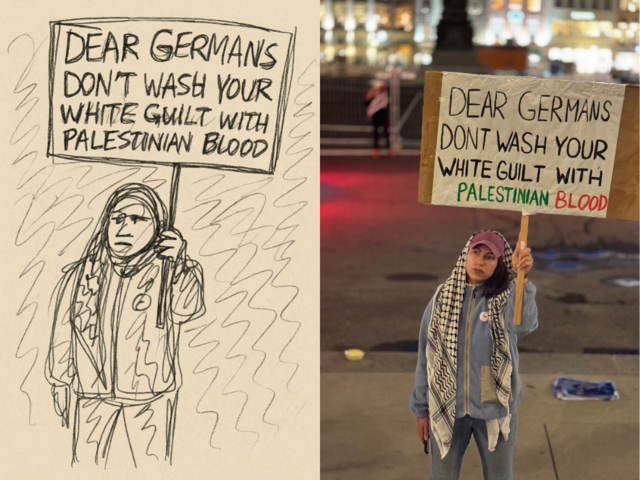 DEAR GERMANS
DON'T WASH YOUR
WHITE GUILT WITH
PALESTINIAN BLOOD
DEAR GERMANS
DONT WASH YOUR
WHITE GUILT WITH
PALESTINIAN BLOOD